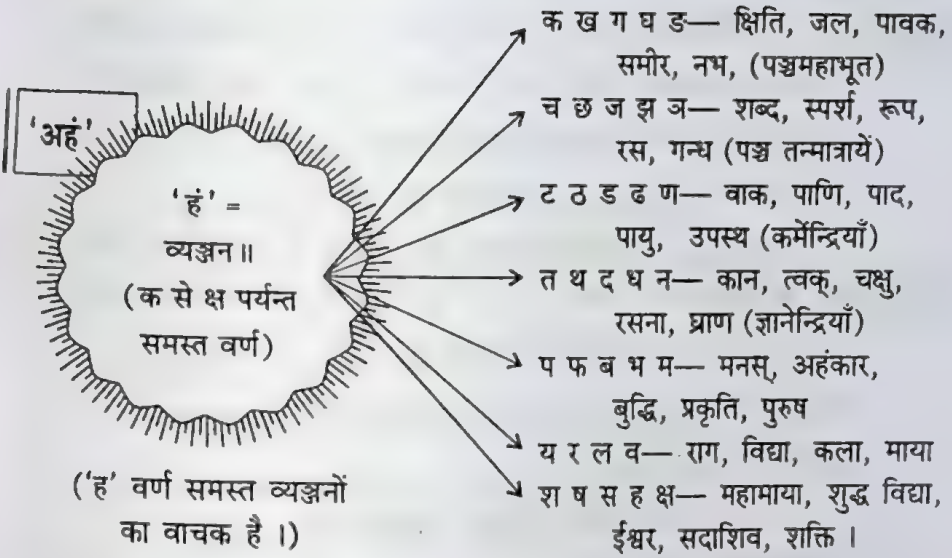 'अहं'
'हं' =
व्यञ्जन॥
(क से क्ष पर्यन्त
समस्त वर्ण)
('ह' वर्ण समस्त व्यञ्जनों
का वाचक है ।)
क ख ग घ ङ— क्षिति, जल, पावक,
समीर, नभ, (पञ्चमहाभूत)
च छ ज झ ञ— शब्द, स्पर्श, रूप,
रस, गन्ध (पञ्च तन्मात्रायें)
ट ठ ड ढ ण— वाक, पाणि, पाद,
पायु, उपस्थ (कर्मेन्द्रियाँ)
त थ द ध न— कान, त्वक्, चक्षु,
रसना, घ्राण (ज्ञानेन्द्रियाँ)
प फ ब भ म— मनस्, अहंकार,
बुद्धि, प्रकृति, पुरुष
य र ल व— राग, विद्या, कला, माया
श ष स ह क्ष— महामाया, शुद्ध विद्या,
ईश्वर, सदाशिव, शक्ति ।